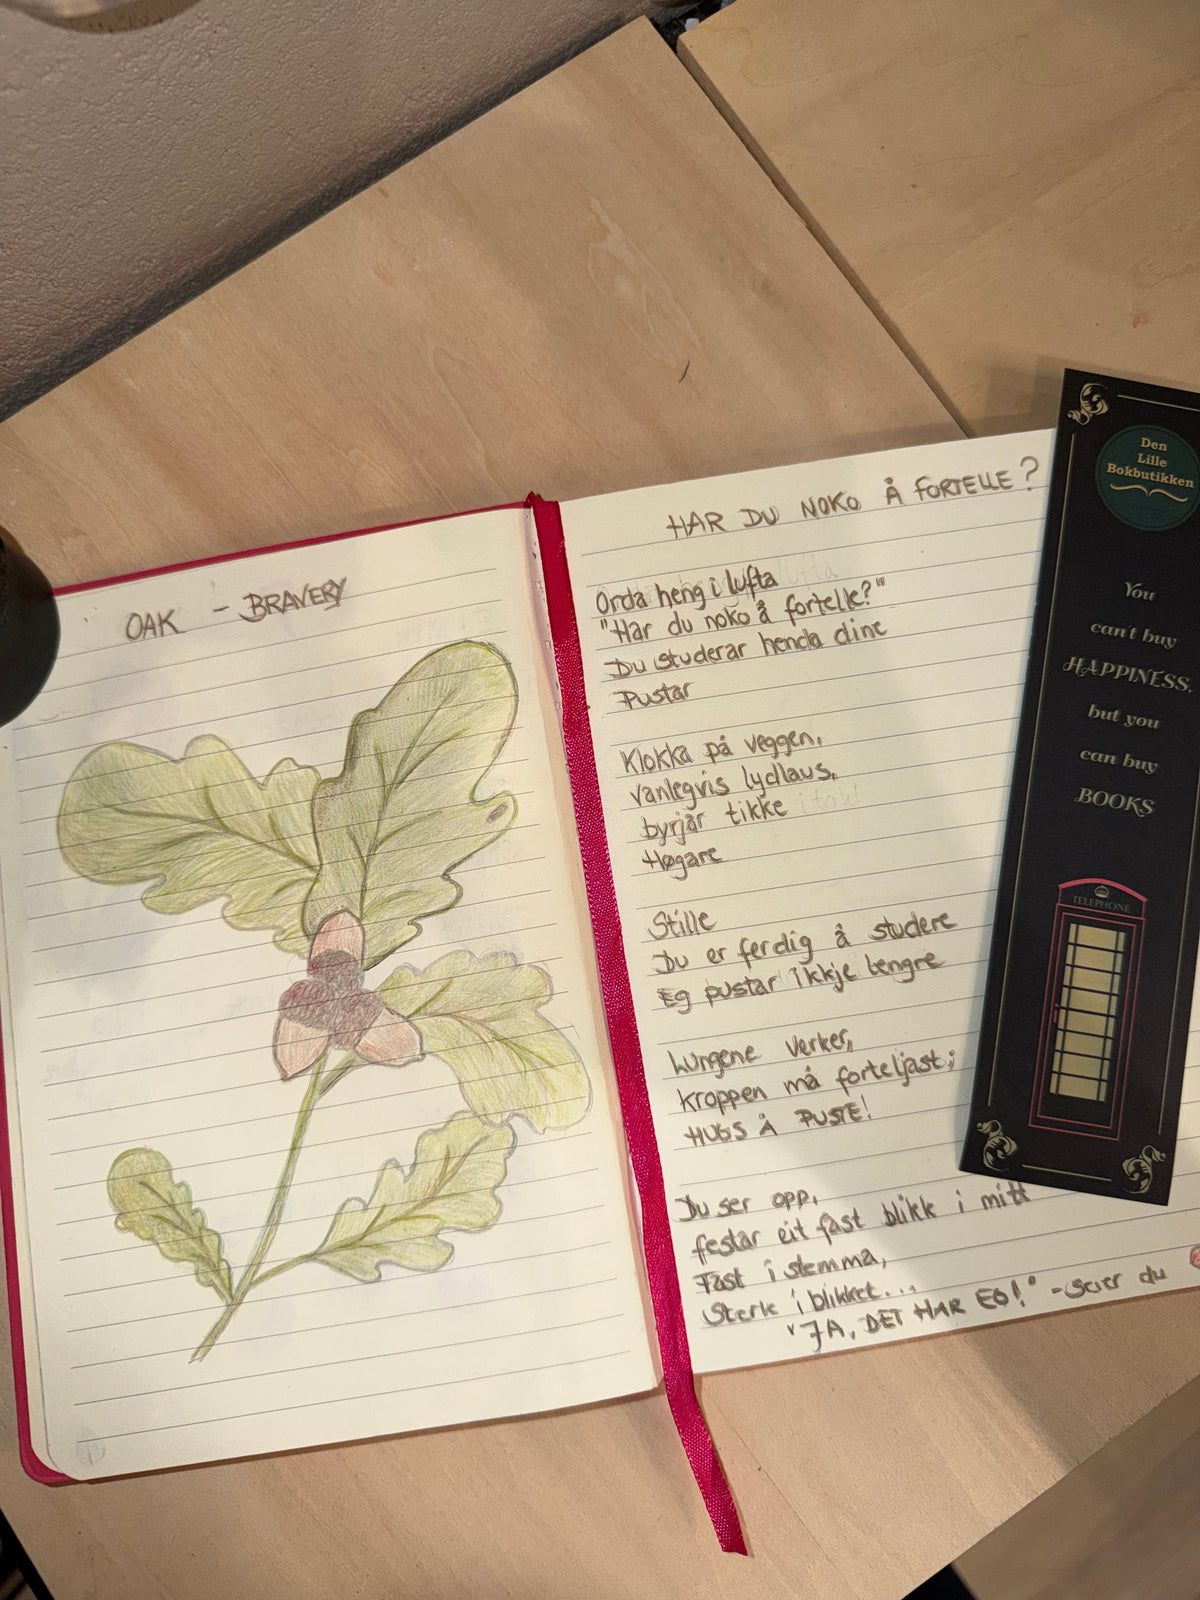 OAK - BRAVERY
HAR DU NOKO Å FORTELLE?
Orda heng i lufta
"Har du noko å fortelle?"
Du studerar henda dine
Pustar
Klokka på veggen,
vanlegvis lydlaus,
byrjar tikke i takt
Høgare
Stille
Du er ferdig å studere
Eg pustar ikkje lengre
Lungene verker,
kroppen må forteljast;
HUGS Å PUSTE!
Du ser opp,
festar eit fast blikk i mitt
Fast i stemma,
Sterk i blikket...
"JA, DET HAR EG!" - seier du
Den
Lille
Bokbutikken
You
can't buy
HAPPINESS,
but you
can buy
BOOKS
TELEPHONE